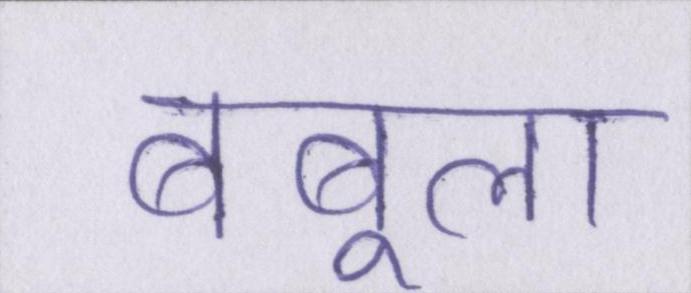 बबूला